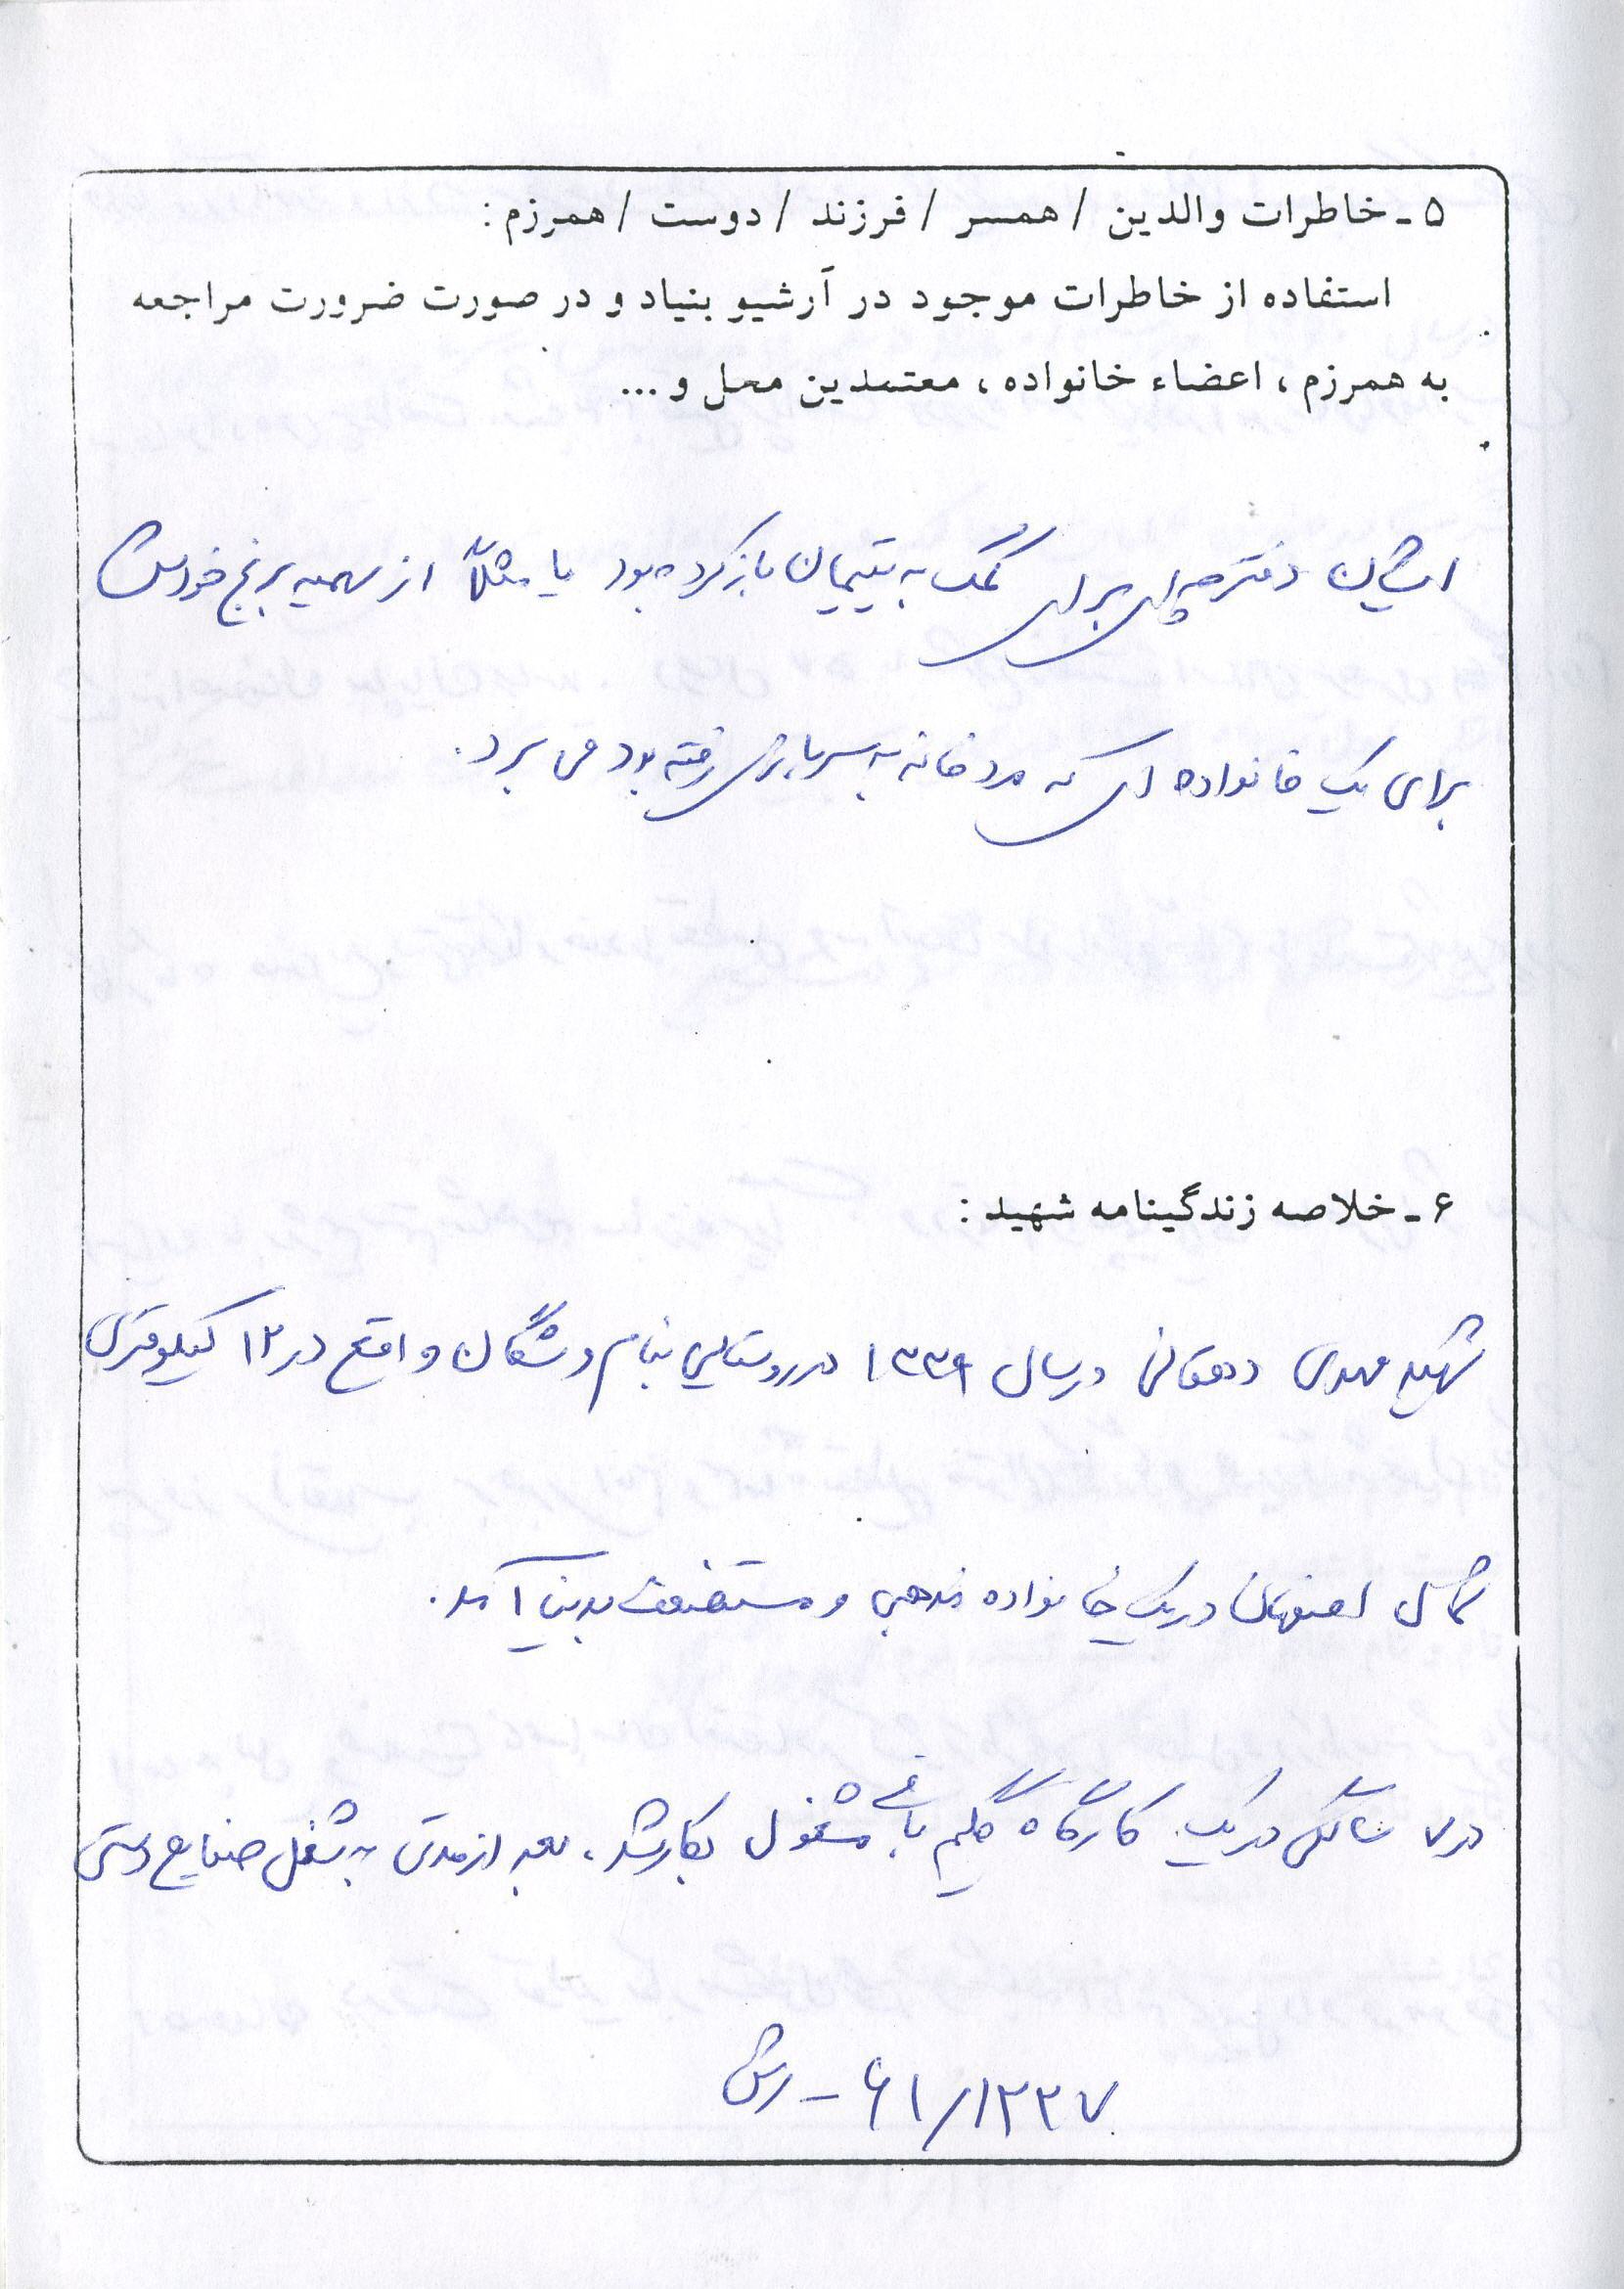 ۵ ـ خاطرات والدین / همسر / فرزند / دوست / همرزم :
استفاده از خاطرات موجود در آرشیو بنیاد و در صورت ضرورت مراجعه
به همرزم ، اعضاء خانواده ، معتمدین محل و ...
ایشان دفترچه ای برای کمک به یتیمان باز کرده بود یا مثلاً از سهمیه برنج خودش
برای یک خانواده ای که مرد خانه به سربازی رفته بود می برد .
۶ ـ خلاصه زندگینامه شهید :
شهید مهدی دهقانی در سال ۱۳۳۹ در روستایی بنام وشگان واقع در ۱۲ کیلومتری
شمال اصفهان در یک خانواده مذهبی و مستضعف بدنیا آمد .
در ۷ سالگی در یک کارگاه گلیم بافی مشغول بکار شد ، بعد از مدتی به شغل صنایع دستی
۶۱/۱۲۲۷ –